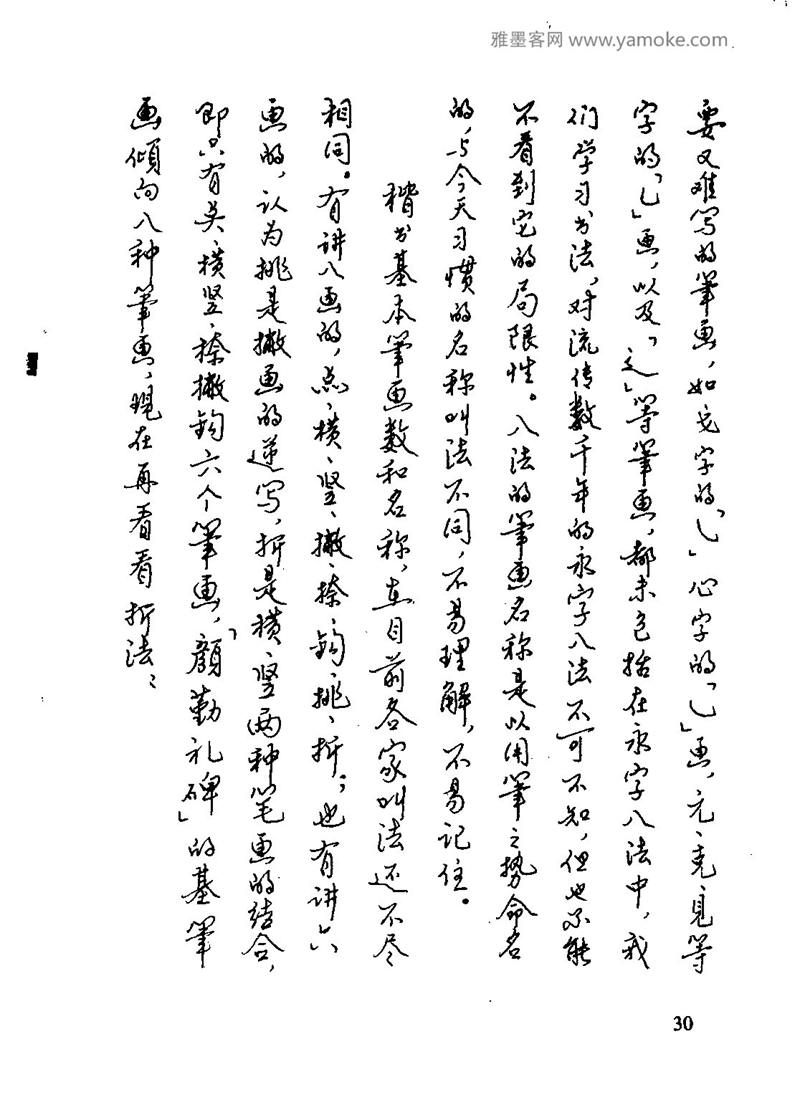 雅墨客网 www.yamoke.com
要又难写的筆画，如戈字的「㇂」心字的「㇃」画，元、克、見等
字的「乚」画，以及「辶」等筆画，都未包括在永字八法中，我
们学习书法，对流传数千年的永字八法不可不知，但也不能
不看到它的局限性。八法的筆画名称是以用筆之势命名
的，与今天习惯的名称叫法不同，不易理解，不易记住。
楷书基本筆画数和名称，在目前各家叫法还不尽
相同。有讲八画的，点、横、竖、撇、捺、鈎、挑、折；也有讲六
画的，认为挑是撇画的逆写，折是横、竖两种笔画的结合，
即只有点、横、竖、捺、撇、鈎六个筆画，「颜勤礼碑」的基筆
画倾向八种筆画，現在再看看折法：
30